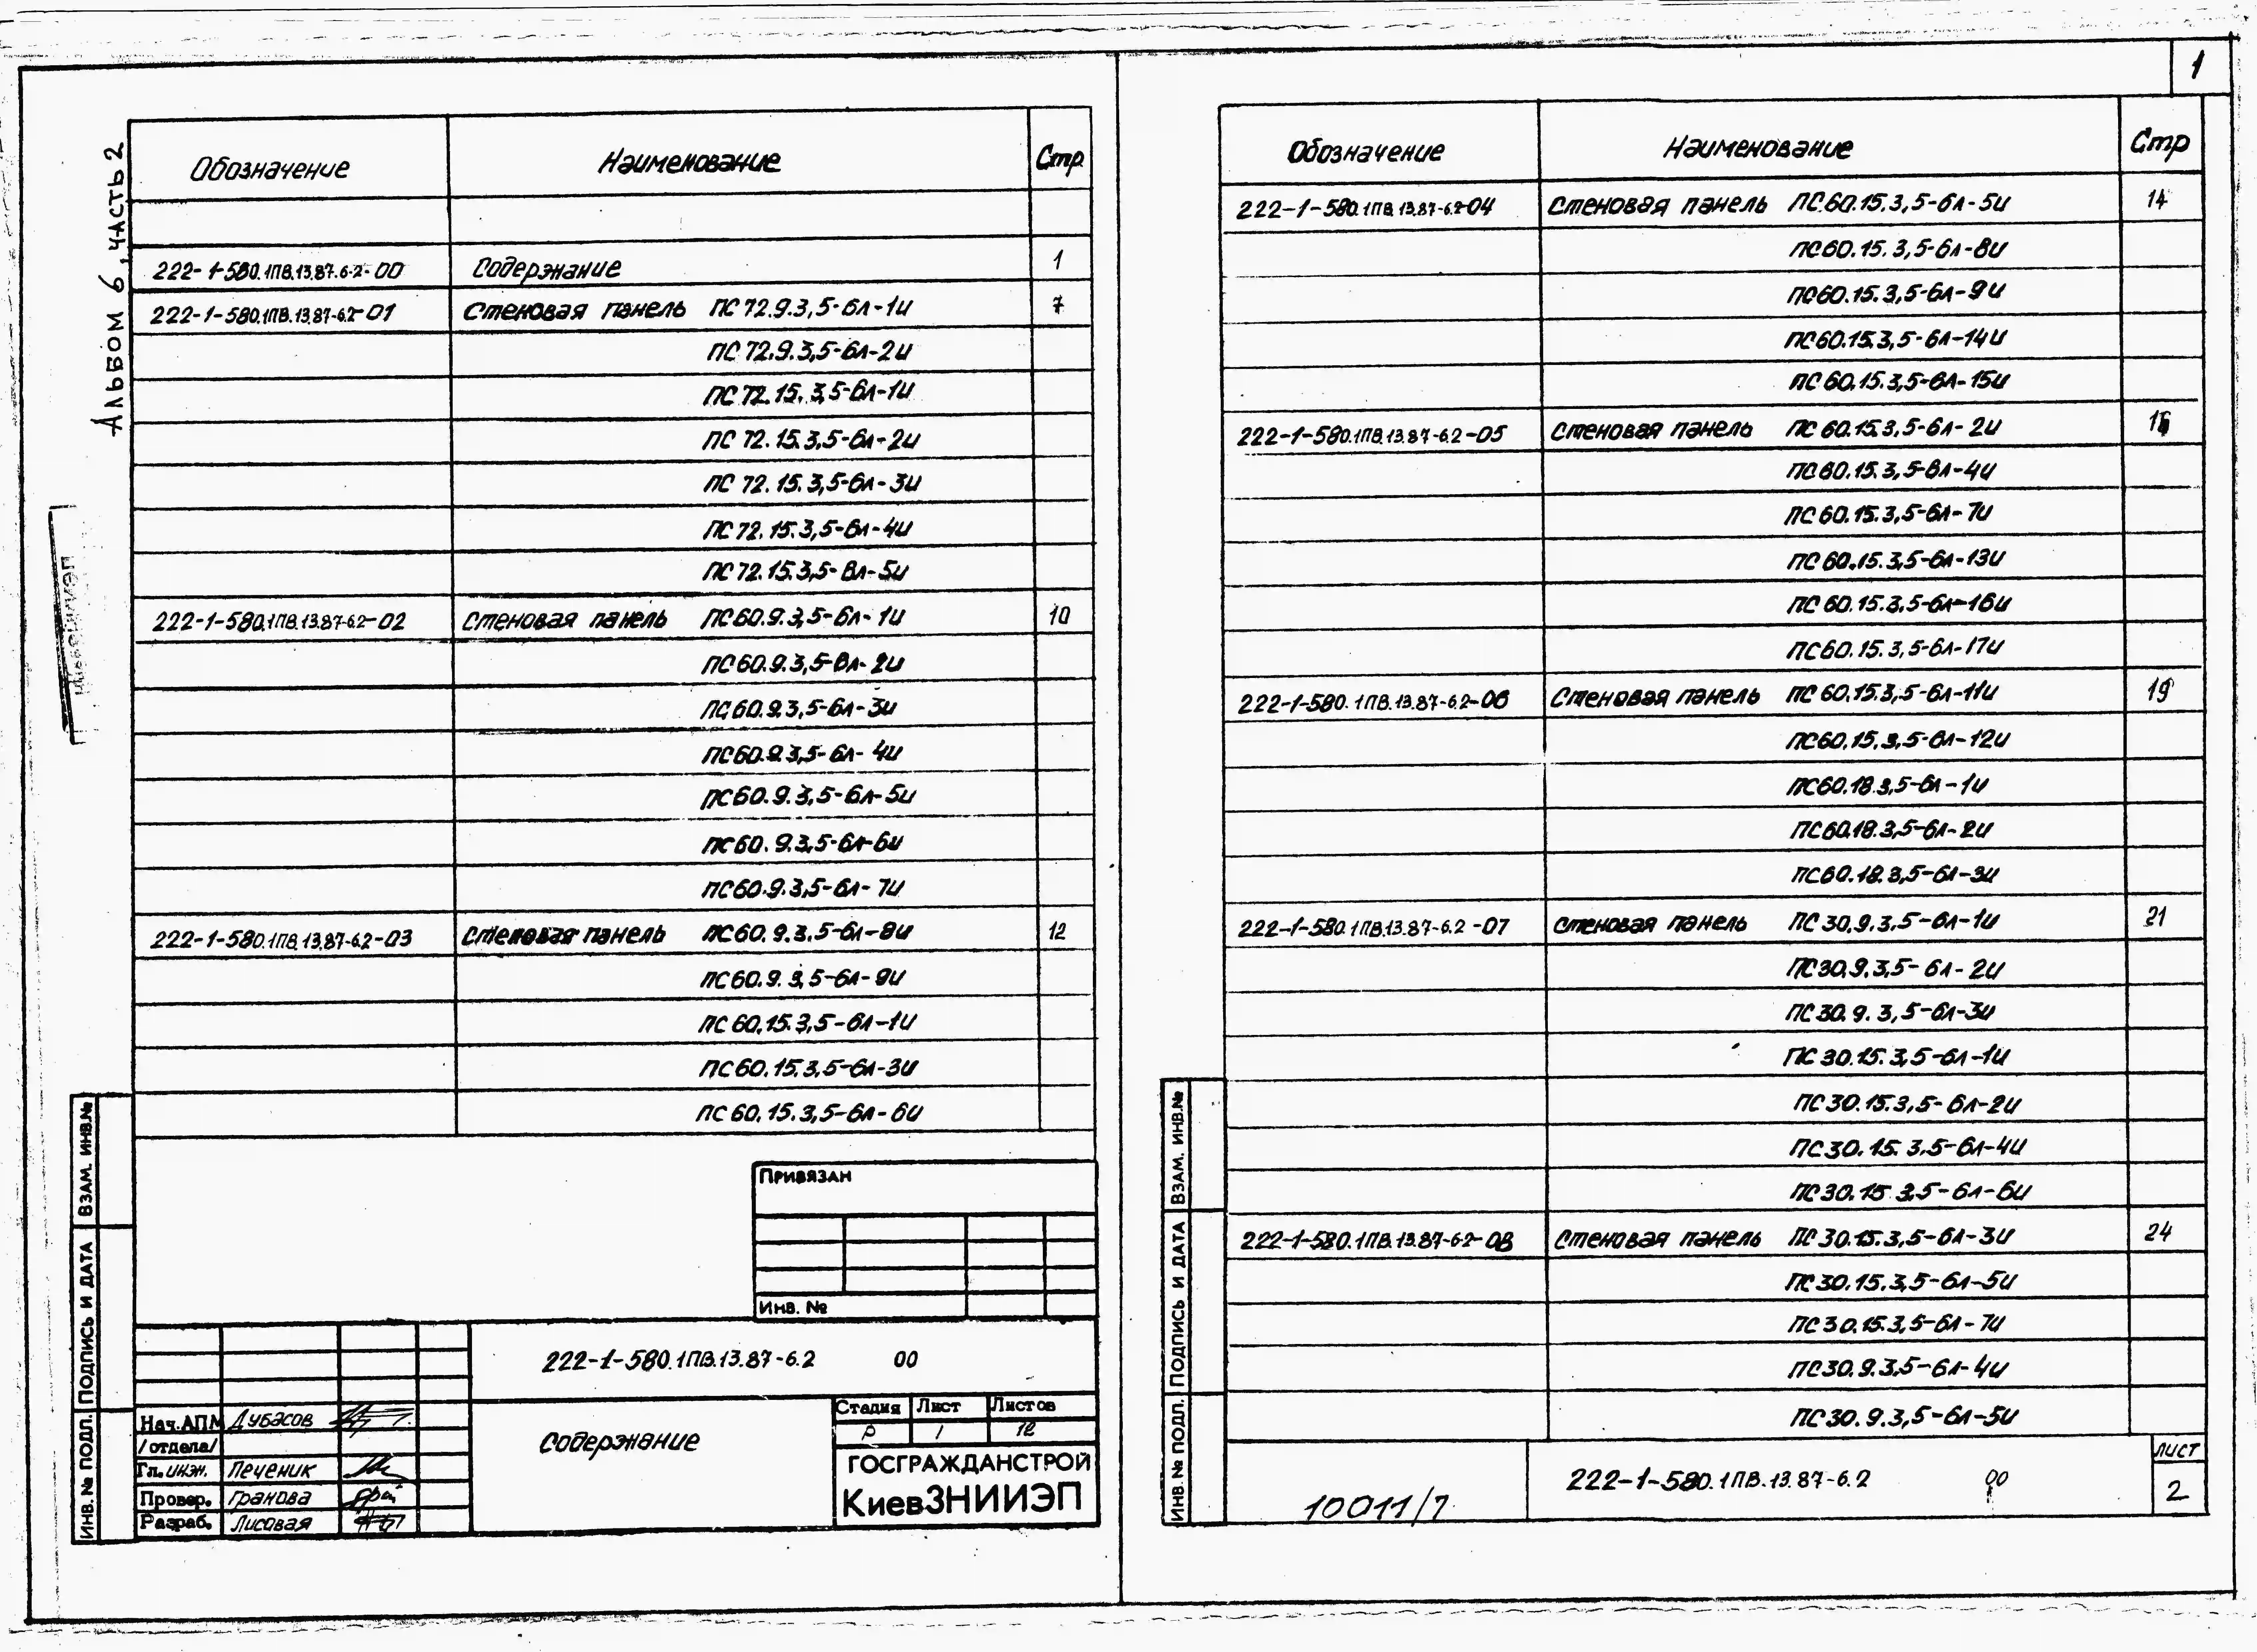 1
Альбом 6, часть 2
Обозначение Наименование Стр.
222-1-580.1ПВ.13.87-6.2-00 Содержание 1
222-1-580.1ПВ.13.87-6.2-01 Стеновая панель ПС 72.9.3,5-6л-1и 7
ПС 72.9.3,5-6л-2и
ПС 72.15.3,5-6л-1и
ПС 72.15.3,5-6л-2и
ПС 72.15.3,5-6л-3и
ПС 72.15.3,5-6л-4и
ПС 72.15.3,5-6л-5и
222-1-580.1ПВ.13.87-6.2-02 Стеновая панель ПС60.9.3,5-6л-1и 10
ПС60.9.3,5-6л-2и
ПС60.9.3,5-6л-3и
ПС60.9.3,5-6л-4и
ПС60.9.3,5-6л-5и
ПС60.9.3,5-6л-6и
ПС60.9.3,5-6л-7и
222-1-580.1ПВ.13.87-6.2-03 Стеновая панель ПС60.9.3,5-6л-8и 12
ПС60.9.3,5-6л-9и
ПС60.15.3,5-6л-1и
ПС60.15.3,5-6л-3и
ПС60.15.3,5-6л-6и
Привязан
Инв. №
222-1-580.1ПВ.13.87-6.2 00
Содержание
Стадия Лист Листов
Р 1 12
Нач.АПМ Дубасов
/отдела/
Гл.инж. Печеник
Провер. Гранова
Разраб. Лисовая
ГОСГРАЖДАНСТРОЙ
КиевЗНИИЭП
ИНВ. № ПОДЛ. ПОДПИСЬ И ДАТА ВЗАМ. ИНВ.№
Обозначение Наименование Стр
222-1-580.1ПВ.13.87-6.2-04 Стеновая панель ПС.60.15.3,5-6л-5и 14
ПС60.15.3,5-6л-8и
ПС60.15.3,5-6л-9и
ПС60.15.3,5-6л-14и
ПС60.15.3,5-6л-15и
222-1-580.1ПВ.13.87-6.2-05 Стеновая панель ПС 60.15.3,5-6л-2и 16
ПС60.15.3,5-6л-4и
ПС60.15.3,5-6л-7и
ПС60.15.3,5-6л-13и
ПС60.15.3,5-6л-16и
ПС60.15.3,5-6л-17и
222-1-580.1ПВ.13.87-6.2-06 Стеновая панель ПС 60.15.3,5-6л-11и 19
ПС60.15.3,5-6л-12и
ПС60.18.3,5-6л-1и
ПС60.18.3,5-6л-2и
ПС60.18.3,5-6л-3и
222-1-580.1ПВ.13.87-6.2-07 Стеновая панель ПС 30.9.3,5-6л-1и 21
ПС30.9.3,5-6л-2и
ПС30.9.3,5-6л-3и
ПС30.15.3,5-6л-1и
ПС30.15.3,5-6л-2и
ПС30.15.3,5-6л-4и
ПС30.15.3,5-6л-6и
222-1-580.1ПВ.13.87-6.2-08 Стеновая панель ПС 30.15.3,5-6л-3и 24
ПС30.15.3,5-6л-5и
ПС30.15.3,5-6л-7и
ПС30.9.3,5-6л-4и
ПС30.9.3,5-6л-5и
10011/7
222-1-580.1ПВ.13.87-6.2 00
ЛИСТ
2
ИНВ. № ПОДЛ. ПОДПИСЬ И ДАТА ВЗАМ. ИНВ.№